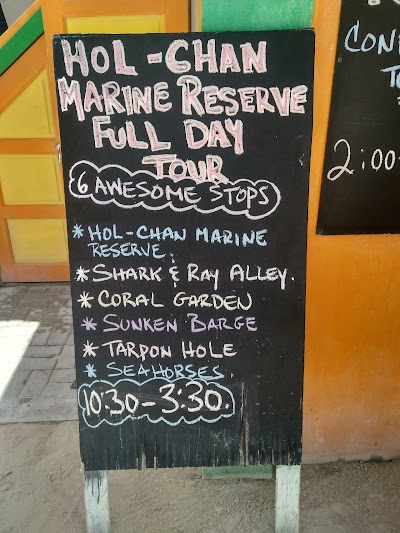 HOL-CHAN
MARINE RESERVE
FULL DAY
TOUR
6 AWESOME STOPS
* HOL-CHAN MARINE
RESERVE.
* SHARK & RAY ALLEY.
* CORAL GARDEN
* SUNKEN BARGE
* TARPON HOLE
* SEAHORSES.
10:30-3:30.
2:00